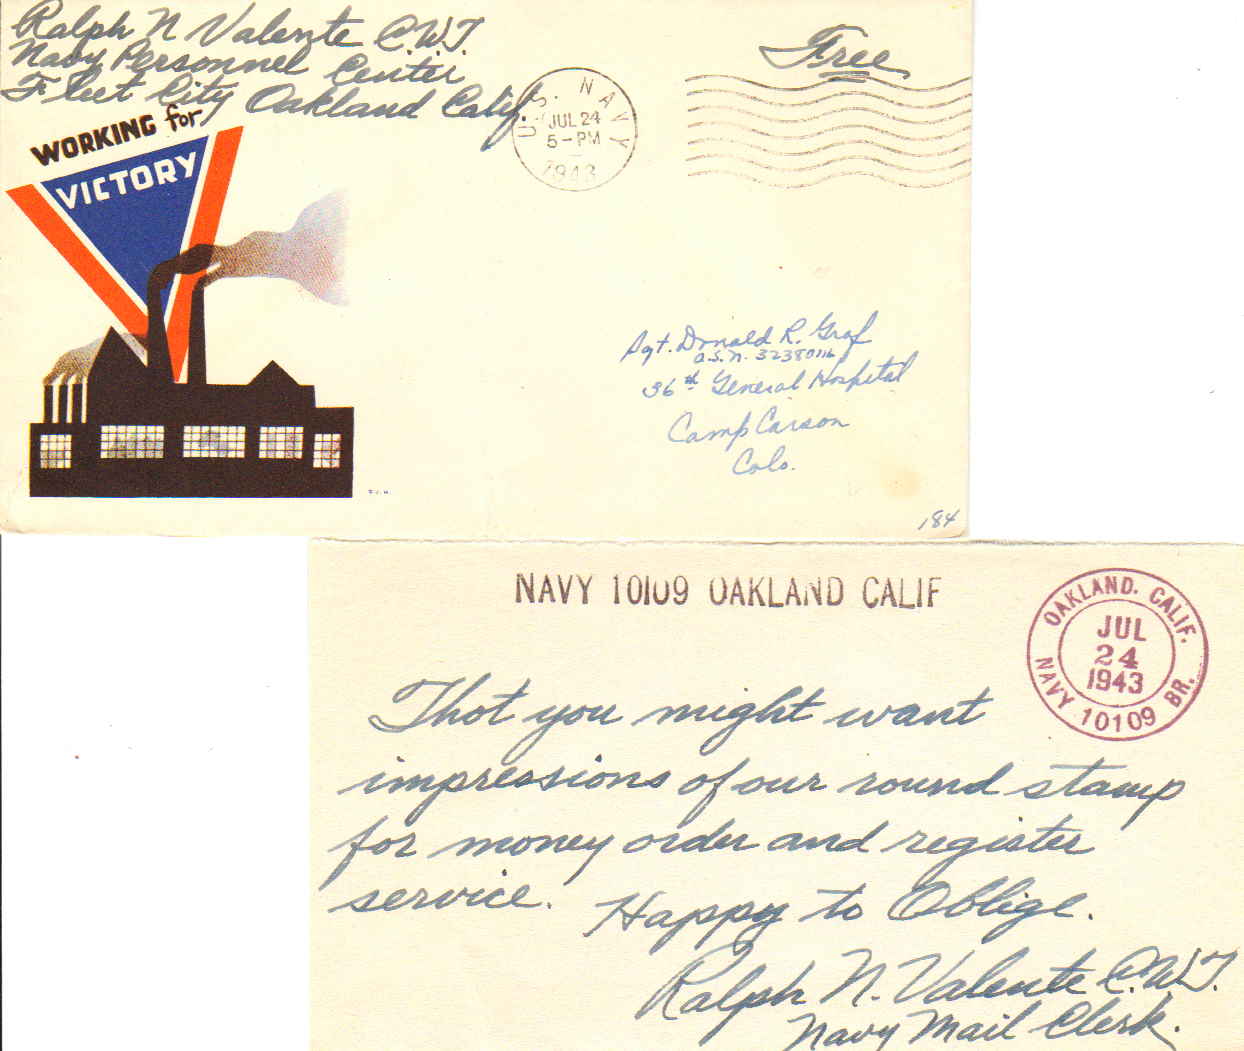 Ralph N Valente C.W.T.
Navy Personnel Center
Fleet City Oakland Calif.
Free
U.S. NAVY
JUL 24
5-PM
1943
WORKING for
VICTORY
Sgt. Donald R. Graf
a.s.n. 32380116
36th General Hospital
Camp Carson
Colo.
184
NAVY 10109 OAKLAND CALIF
OAKLAND. CALIF.
JUL
24
1943
NAVY 10109 BR.
Thot you might want
impressions of our round stamp
for money order and register
service. Happy to Oblige.
Ralph N. Valente C.W.T.
Navy Mail Clerk.